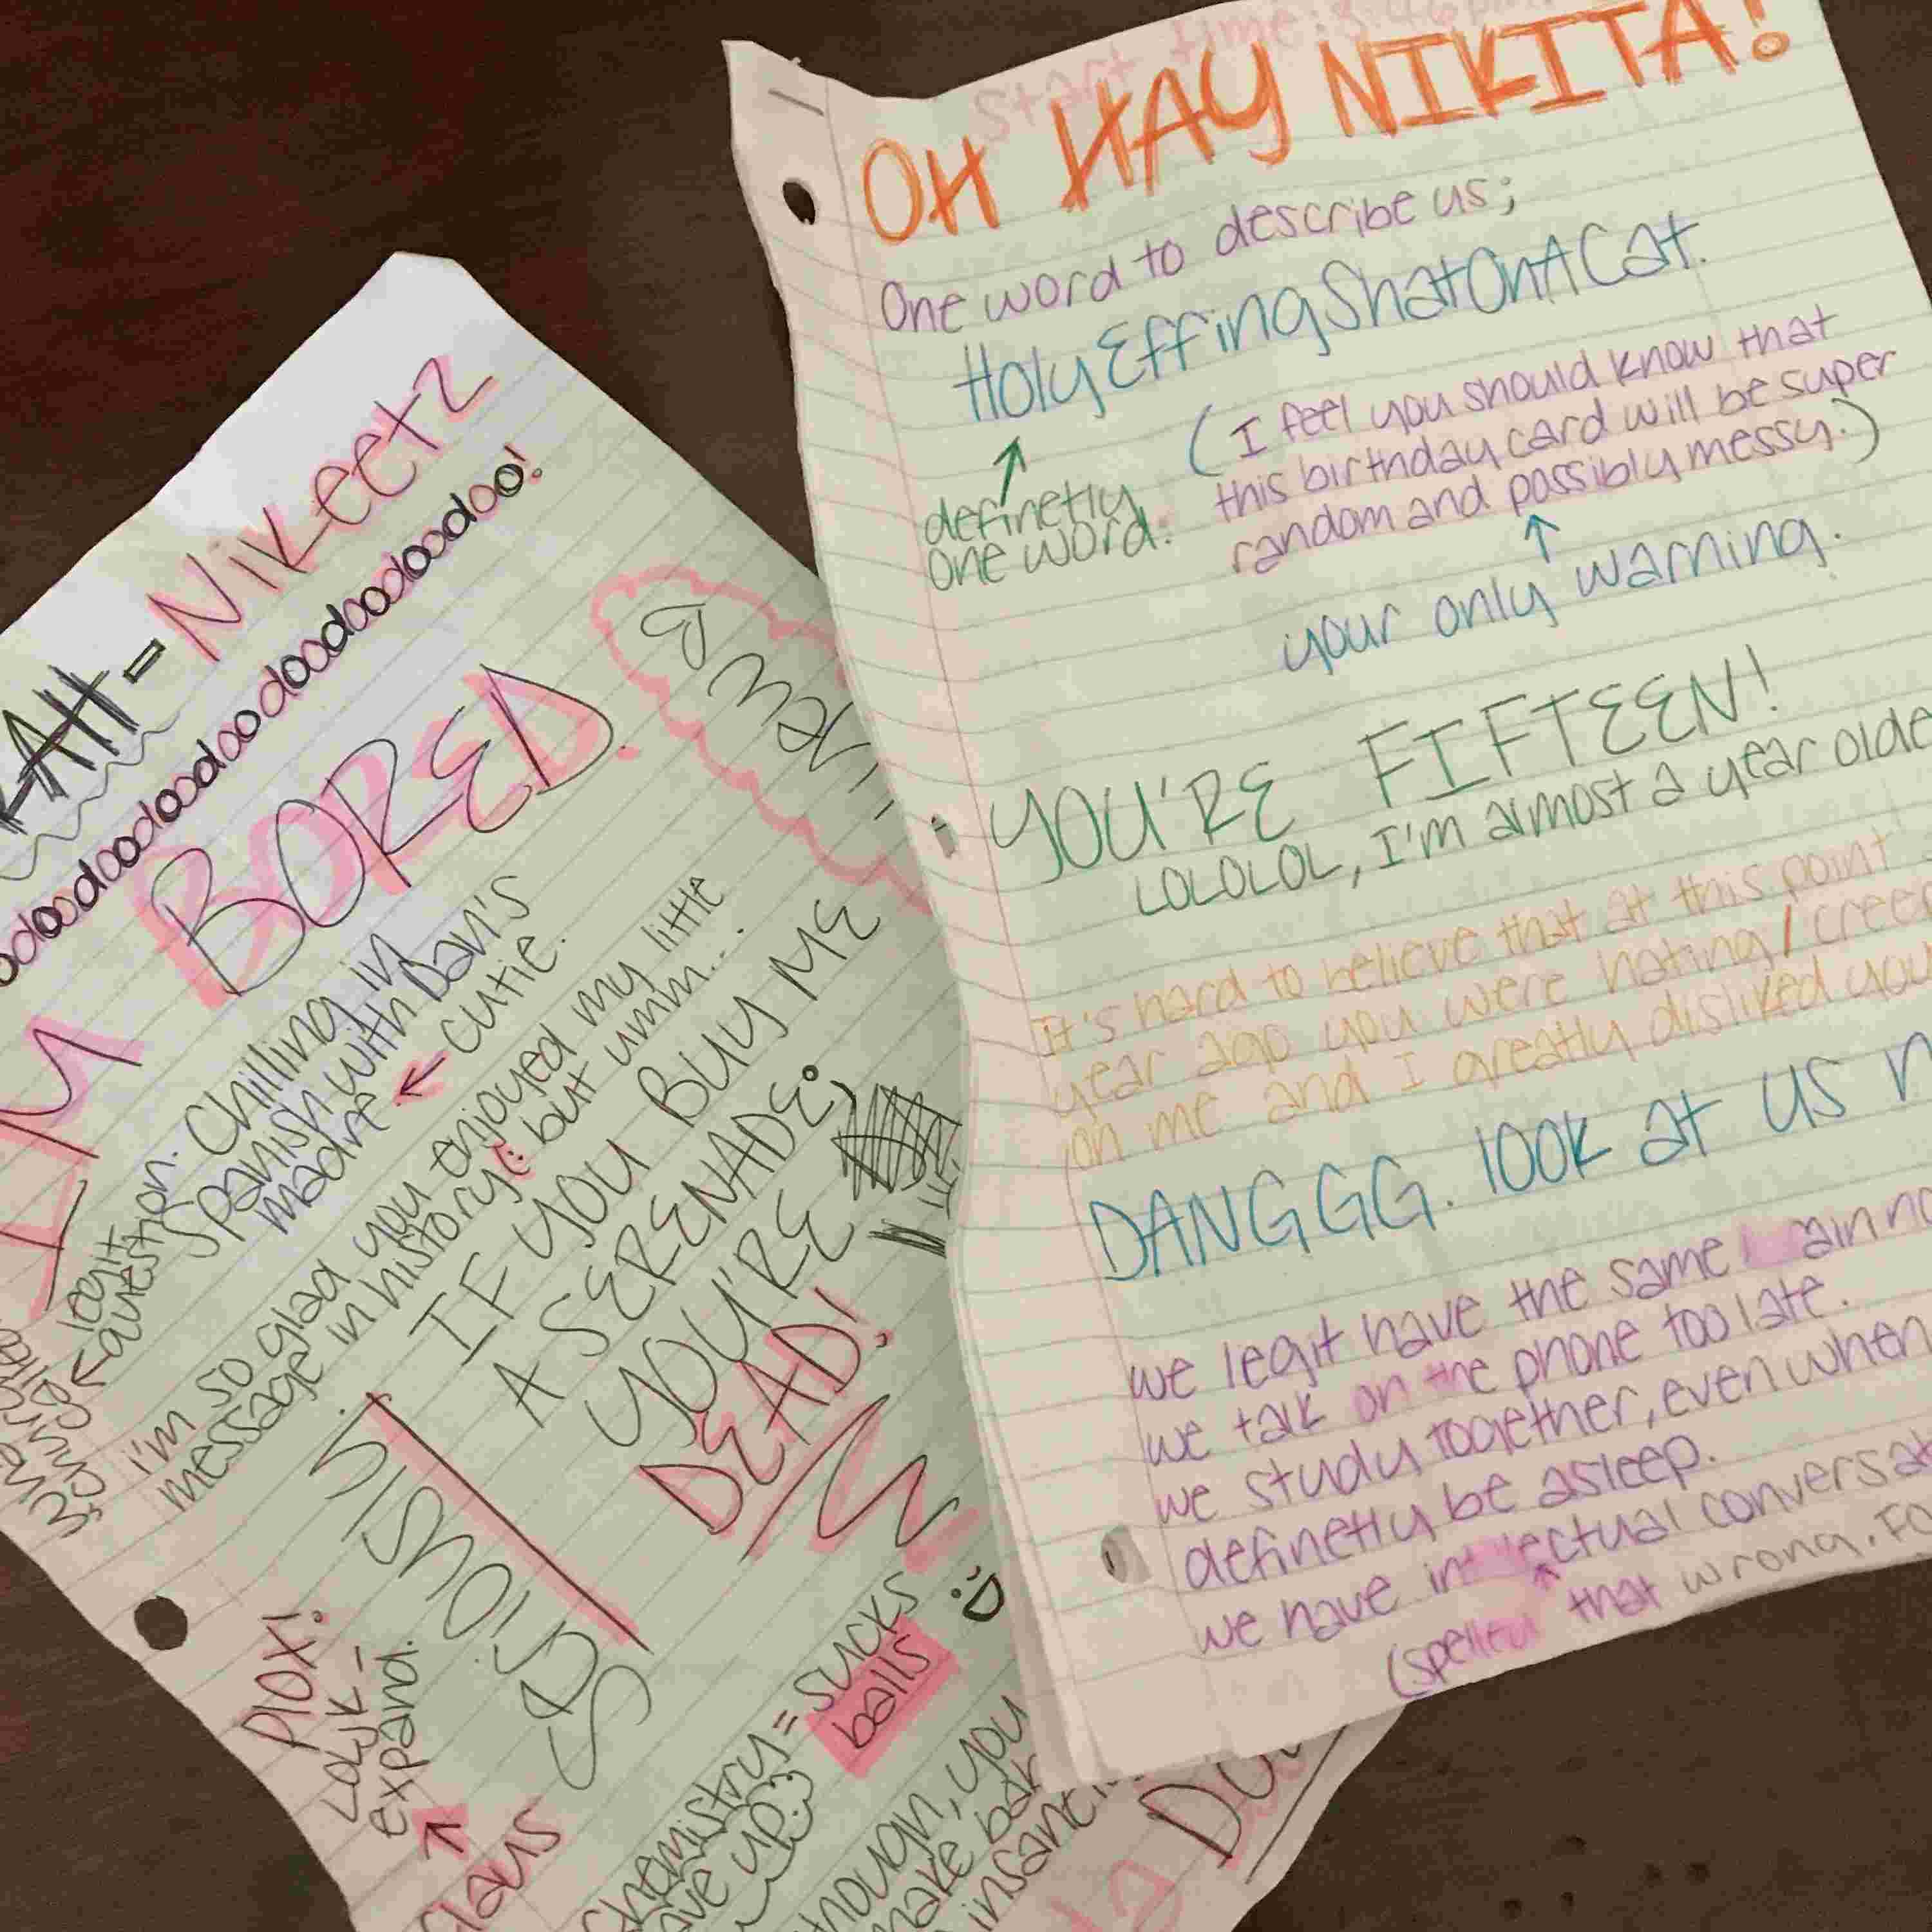 Start time: 3:46pm
OH HAY NIKITA!
One word to describe us;
HolyEffingShatOnACat.
definetly
one word.
(I feel you should know that
this birthday card will be super
random and possibly messy.)
your only warning.
YOU'RE FIFTEEN!
LOLOLOL, I'm almost a year olde
It's hard to believe that at this point
year ago you were hating/creep
on me and I greatly disliked you
DANGGG. look at us n
we legit have the same
we talk on the phone too late.
we study together, even when
definetly be asleep.
we have intellectual conversat
(spelled that wrong. Fo
-Nikeetz
dooodooodooodooodooodooodooodooo!
I'M BORED.
legit
question.
Chilling in
Spanish with Dan's
madre
cutie.
i'm so glad you enjoyed my little
message in history (: but umm...
IF YOU BUY ME
A SERENADE;
YOU'RE
DEAD!
:D
plox!
LOWK-
expand.
chemistry = sucks
balls
though, you
make